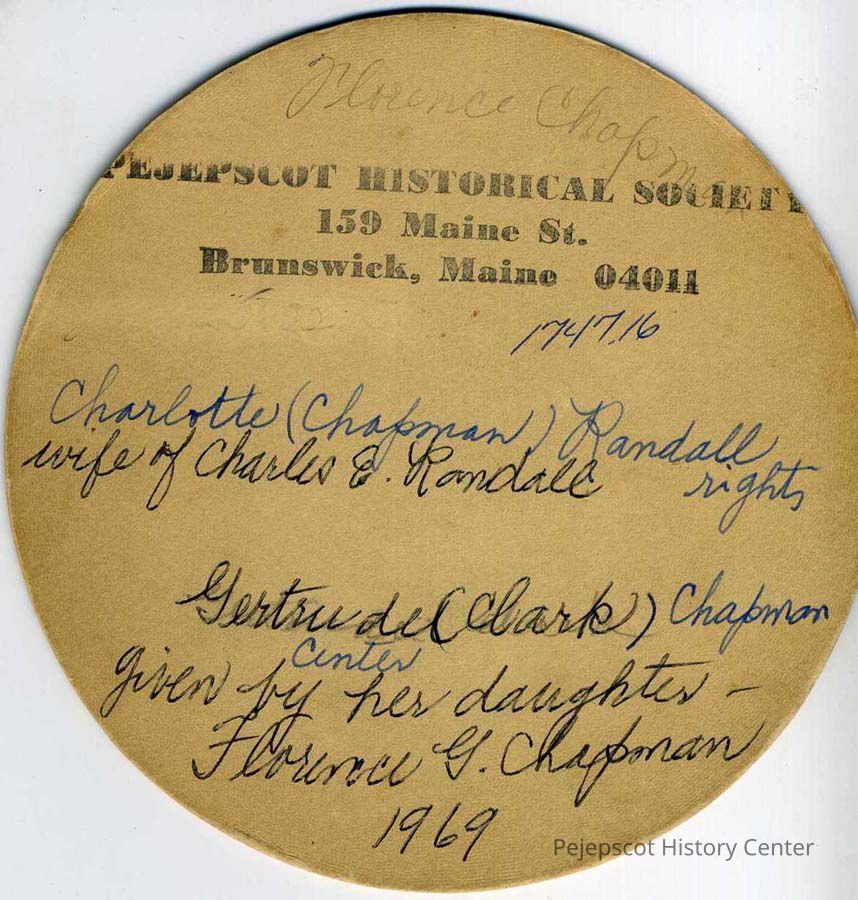 Florence Chapman
PEJEPSCOT HISTORICAL SOCIETY
159 Maine St.
Brunswick, Maine 04011
1747.16
Charlotte (Chapman) Randall
wife of Charles E. Randall rights
Gertrude (Clark) Chapman
center
given by her daughter –
Florence G. Chapman
1969
Pejepscot History Center